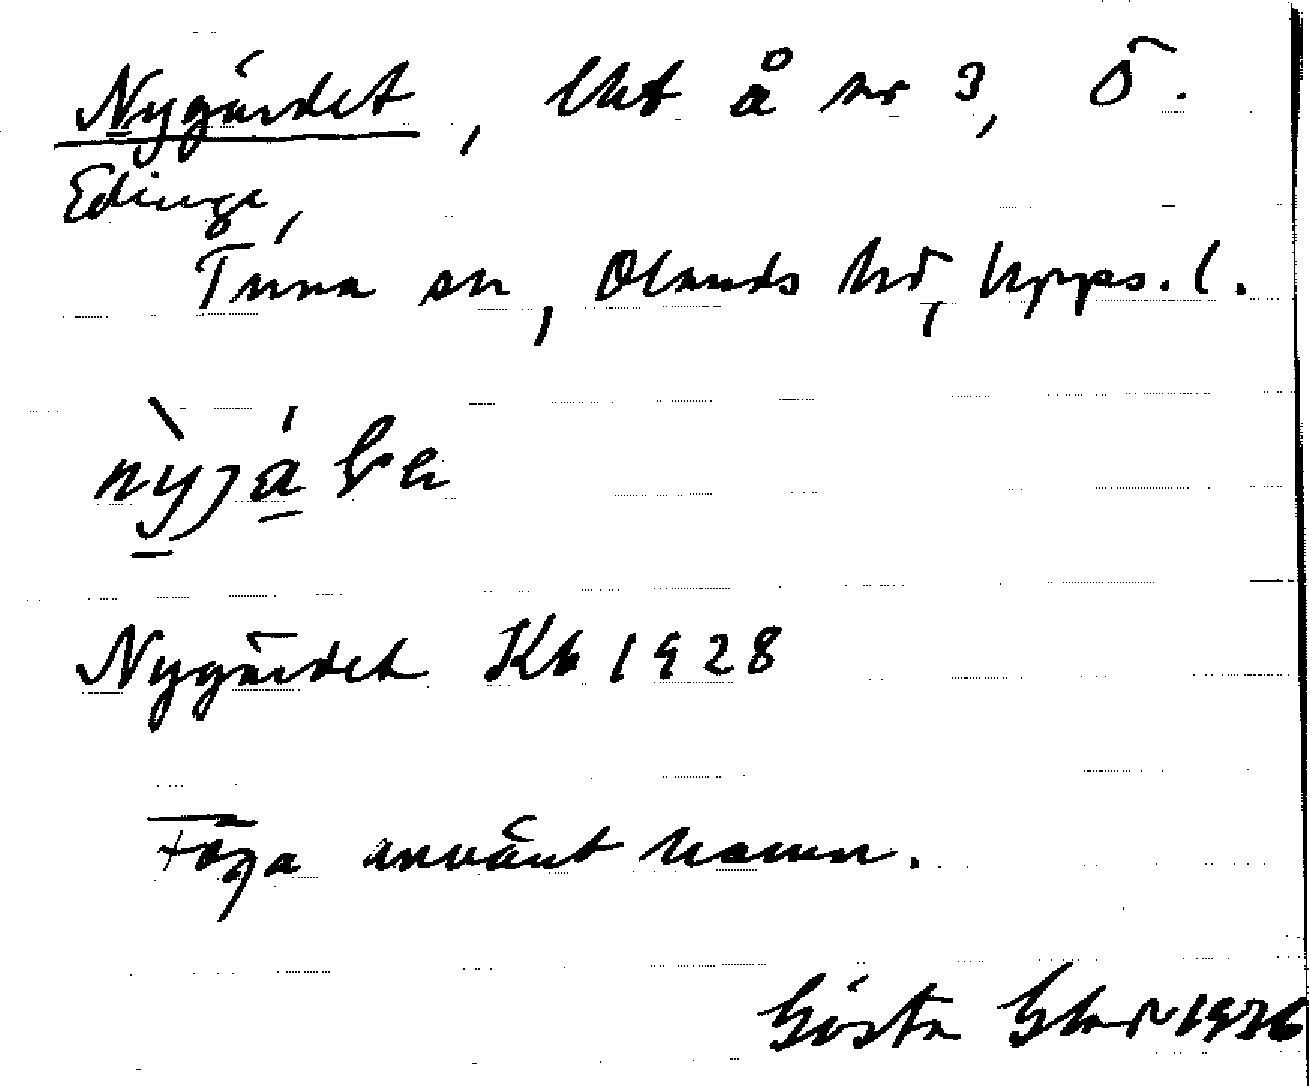 Nygärdet, lht å nr 3, Ö.
Edinge,
Tuna sn, Olands hd, Upps. l.
Nygärdet Kb 1928
Föga använt namn.
Gösta